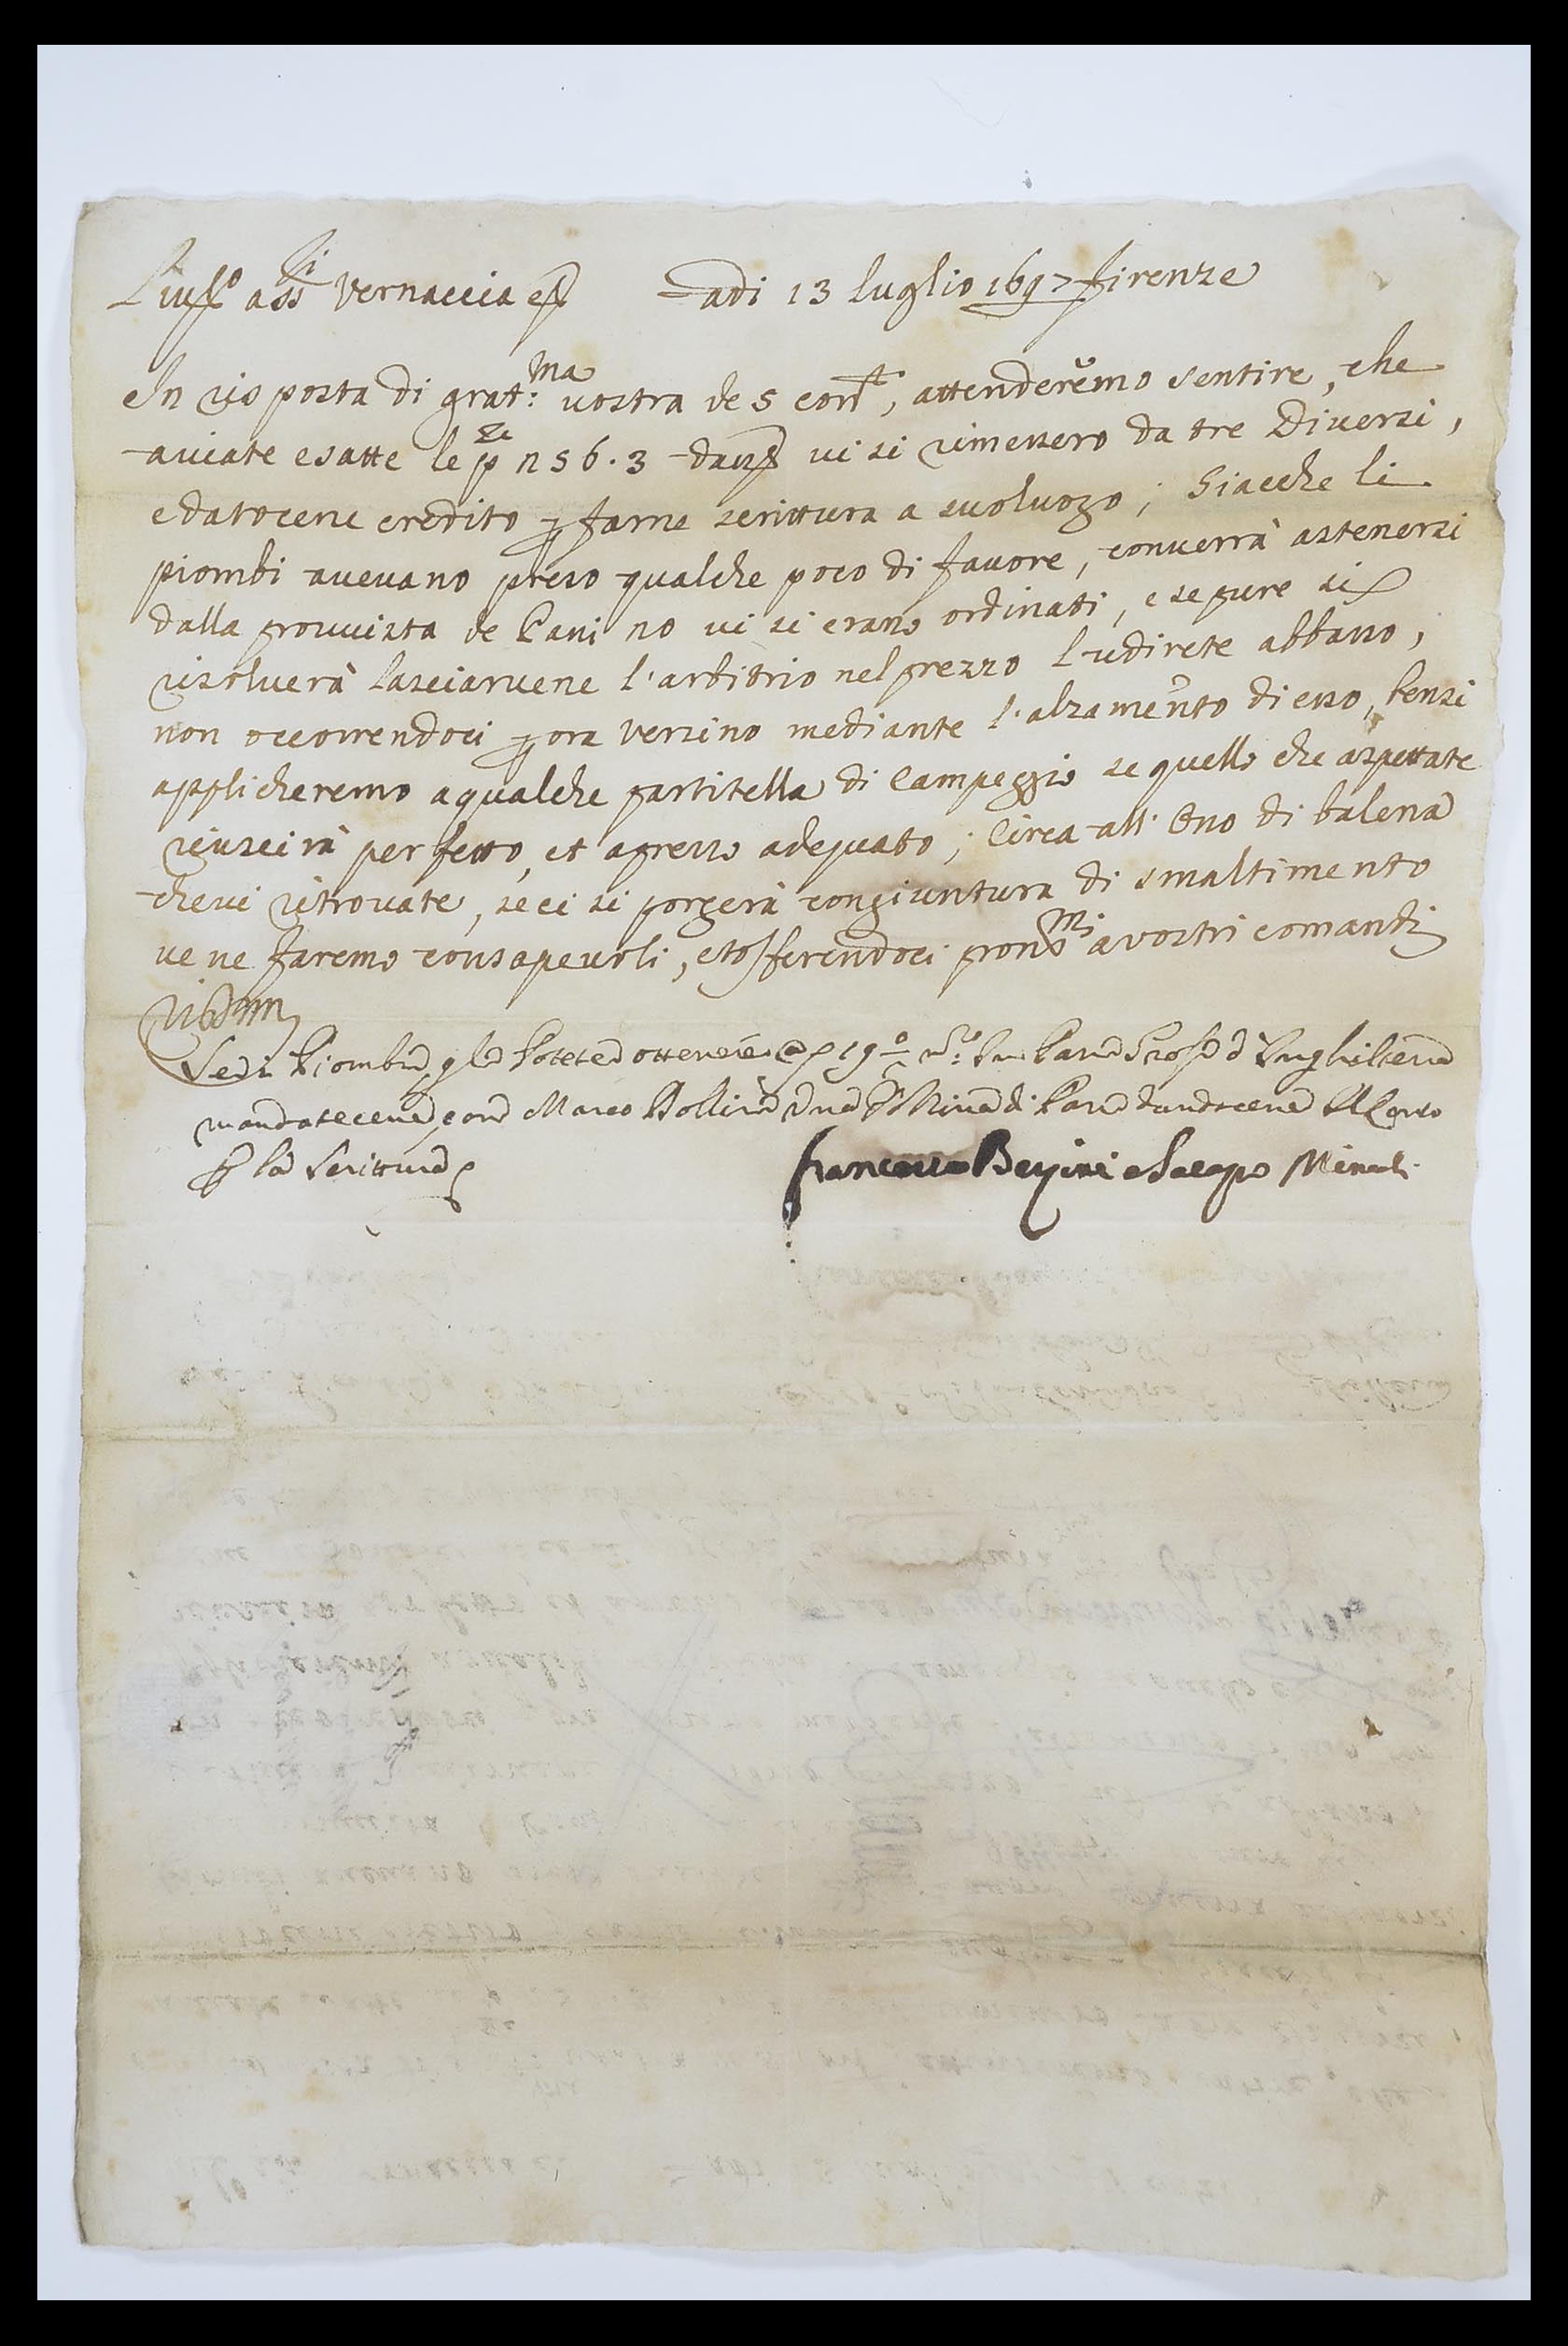 adi 13 luglio 1697 firenze
Vernaccia
In risposta di grat:ma vostra de 5 corrt, attenderemo sentire, che
aviate esatte le pze n 56.3 vi si rimessero da tre Diversi,
e datocene credito p farne scrittura a suo luogo; Giacche li
piombi avevano preso qualche poco di favore, converrà astenersi
dalla provvista de Pani no vi si erano ordinati, e se pure si
risolverà lasciarvene l'arbitrio nel prezzo l'udirete abbasso,
non occorrendoci p ora verzino mediante l'alzamento di esso, bensi
applicheremo a qualche partitella di Campeggio se quello che aspettate
riuscirà perfetto, et a prezzo adequato; Circa all' Ono di balena
che vi ritrovate, se ci si porgerà congiuntura di smaltimento
ve ne faremo consapevoli, et offerendoci pronmi a vostri comandi
Se di Piombi potete ottenere 19 Pani d Inghilterra
mandatecene con Marco di Pani dandocene
p la Scrittura
Francesco e Jacopo